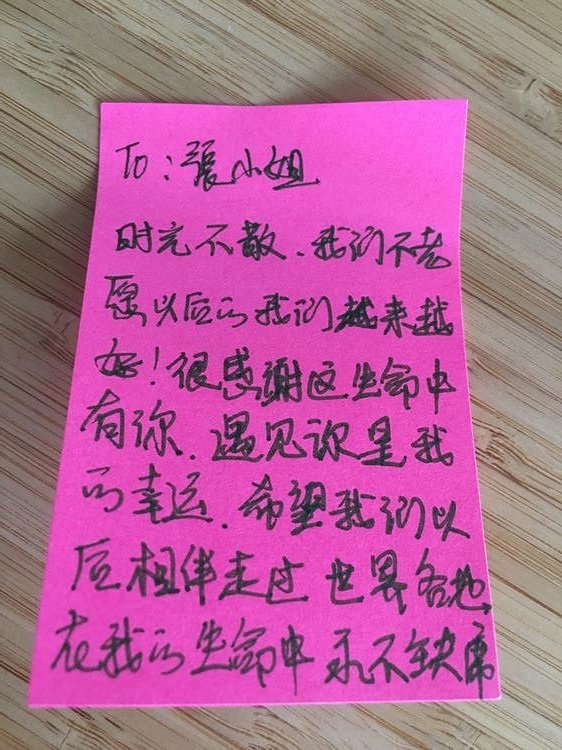 To：張小姐
时光不散、我们不老
愿以后的我们越来越
好！很感谢这生命中
有你、遇见你是我
的幸运、希望我们以
后相伴走过世界各地、
在我的生命中永不缺席